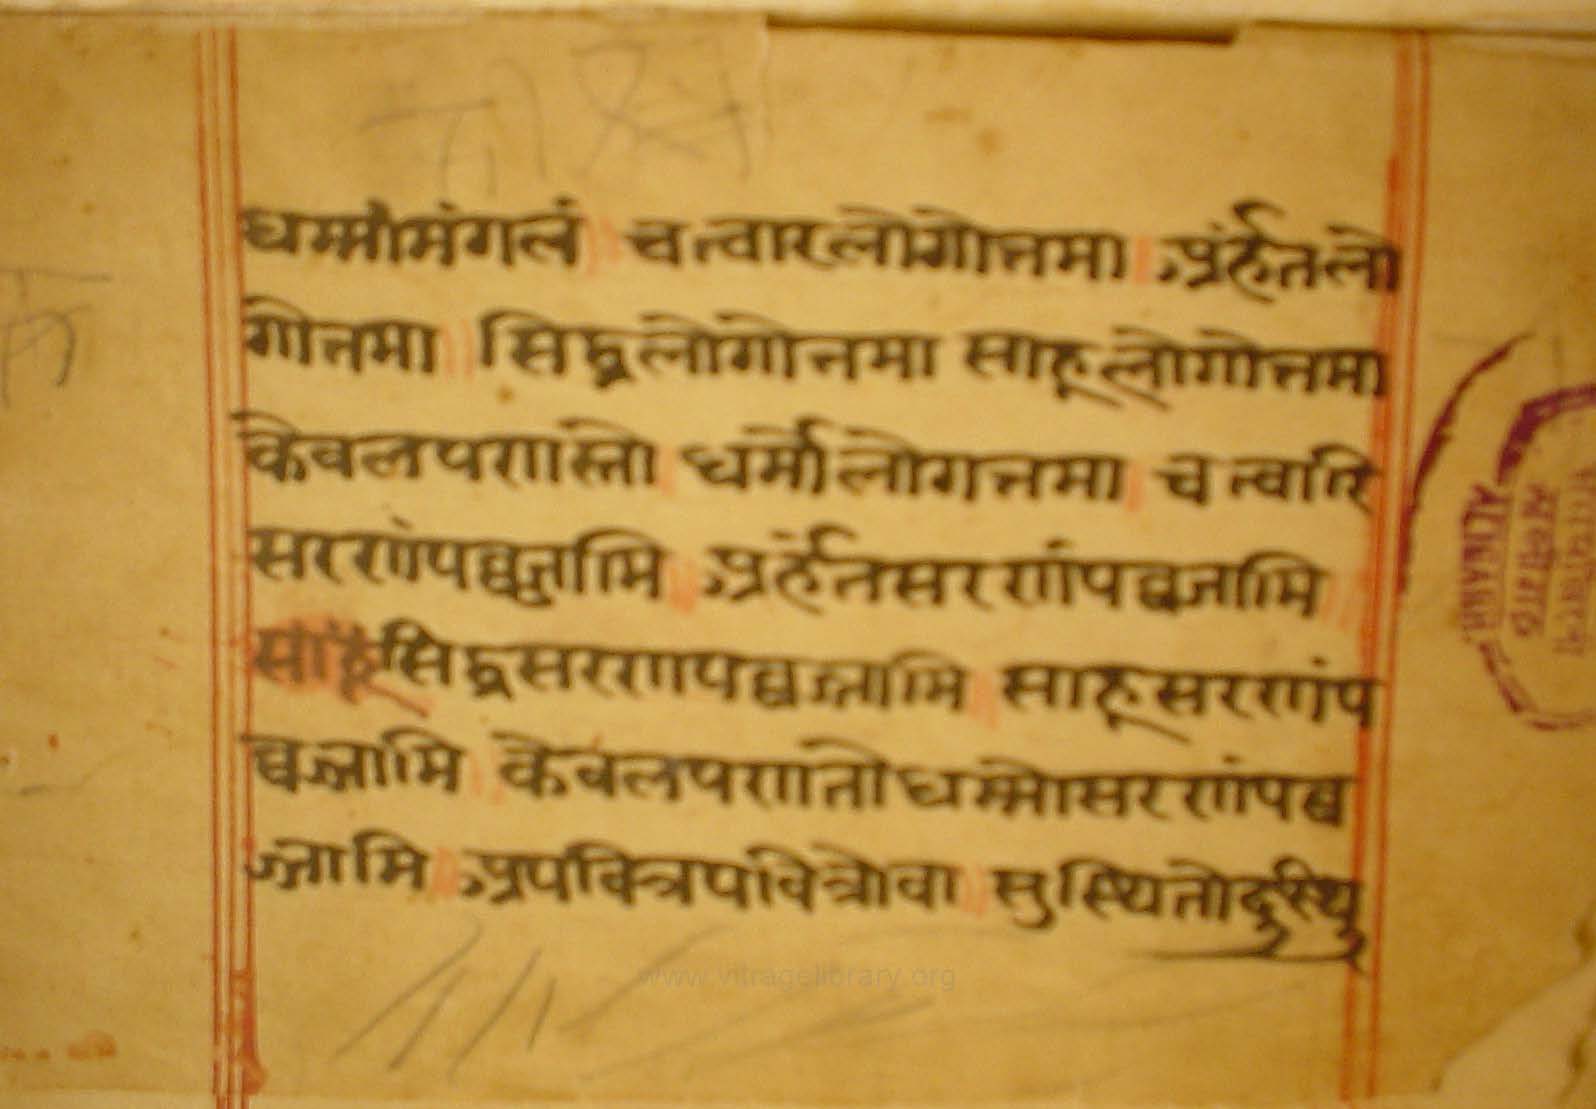 धर्म्मोमंगलं चत्वारलोगोत्तमा अर्हंतलो
गोत्तमा सिद्धलोगोत्तमा साहूलोगोत्तमा
केवलपरणस्तो धर्मोलोगत्तमा चत्वारि
सरणंपव्वज्जामि अर्हंतसरणंपव्वजामि
साहू सिद्धसरणपव्वज्जामि साहूसरणंप
व्वज्जामि केवलपरणतोधम्मोसरणंपव्व
ज्जामि अपवित्रपवित्रोवा सुस्थितोदुस्थि
www.vitragelibrary.org